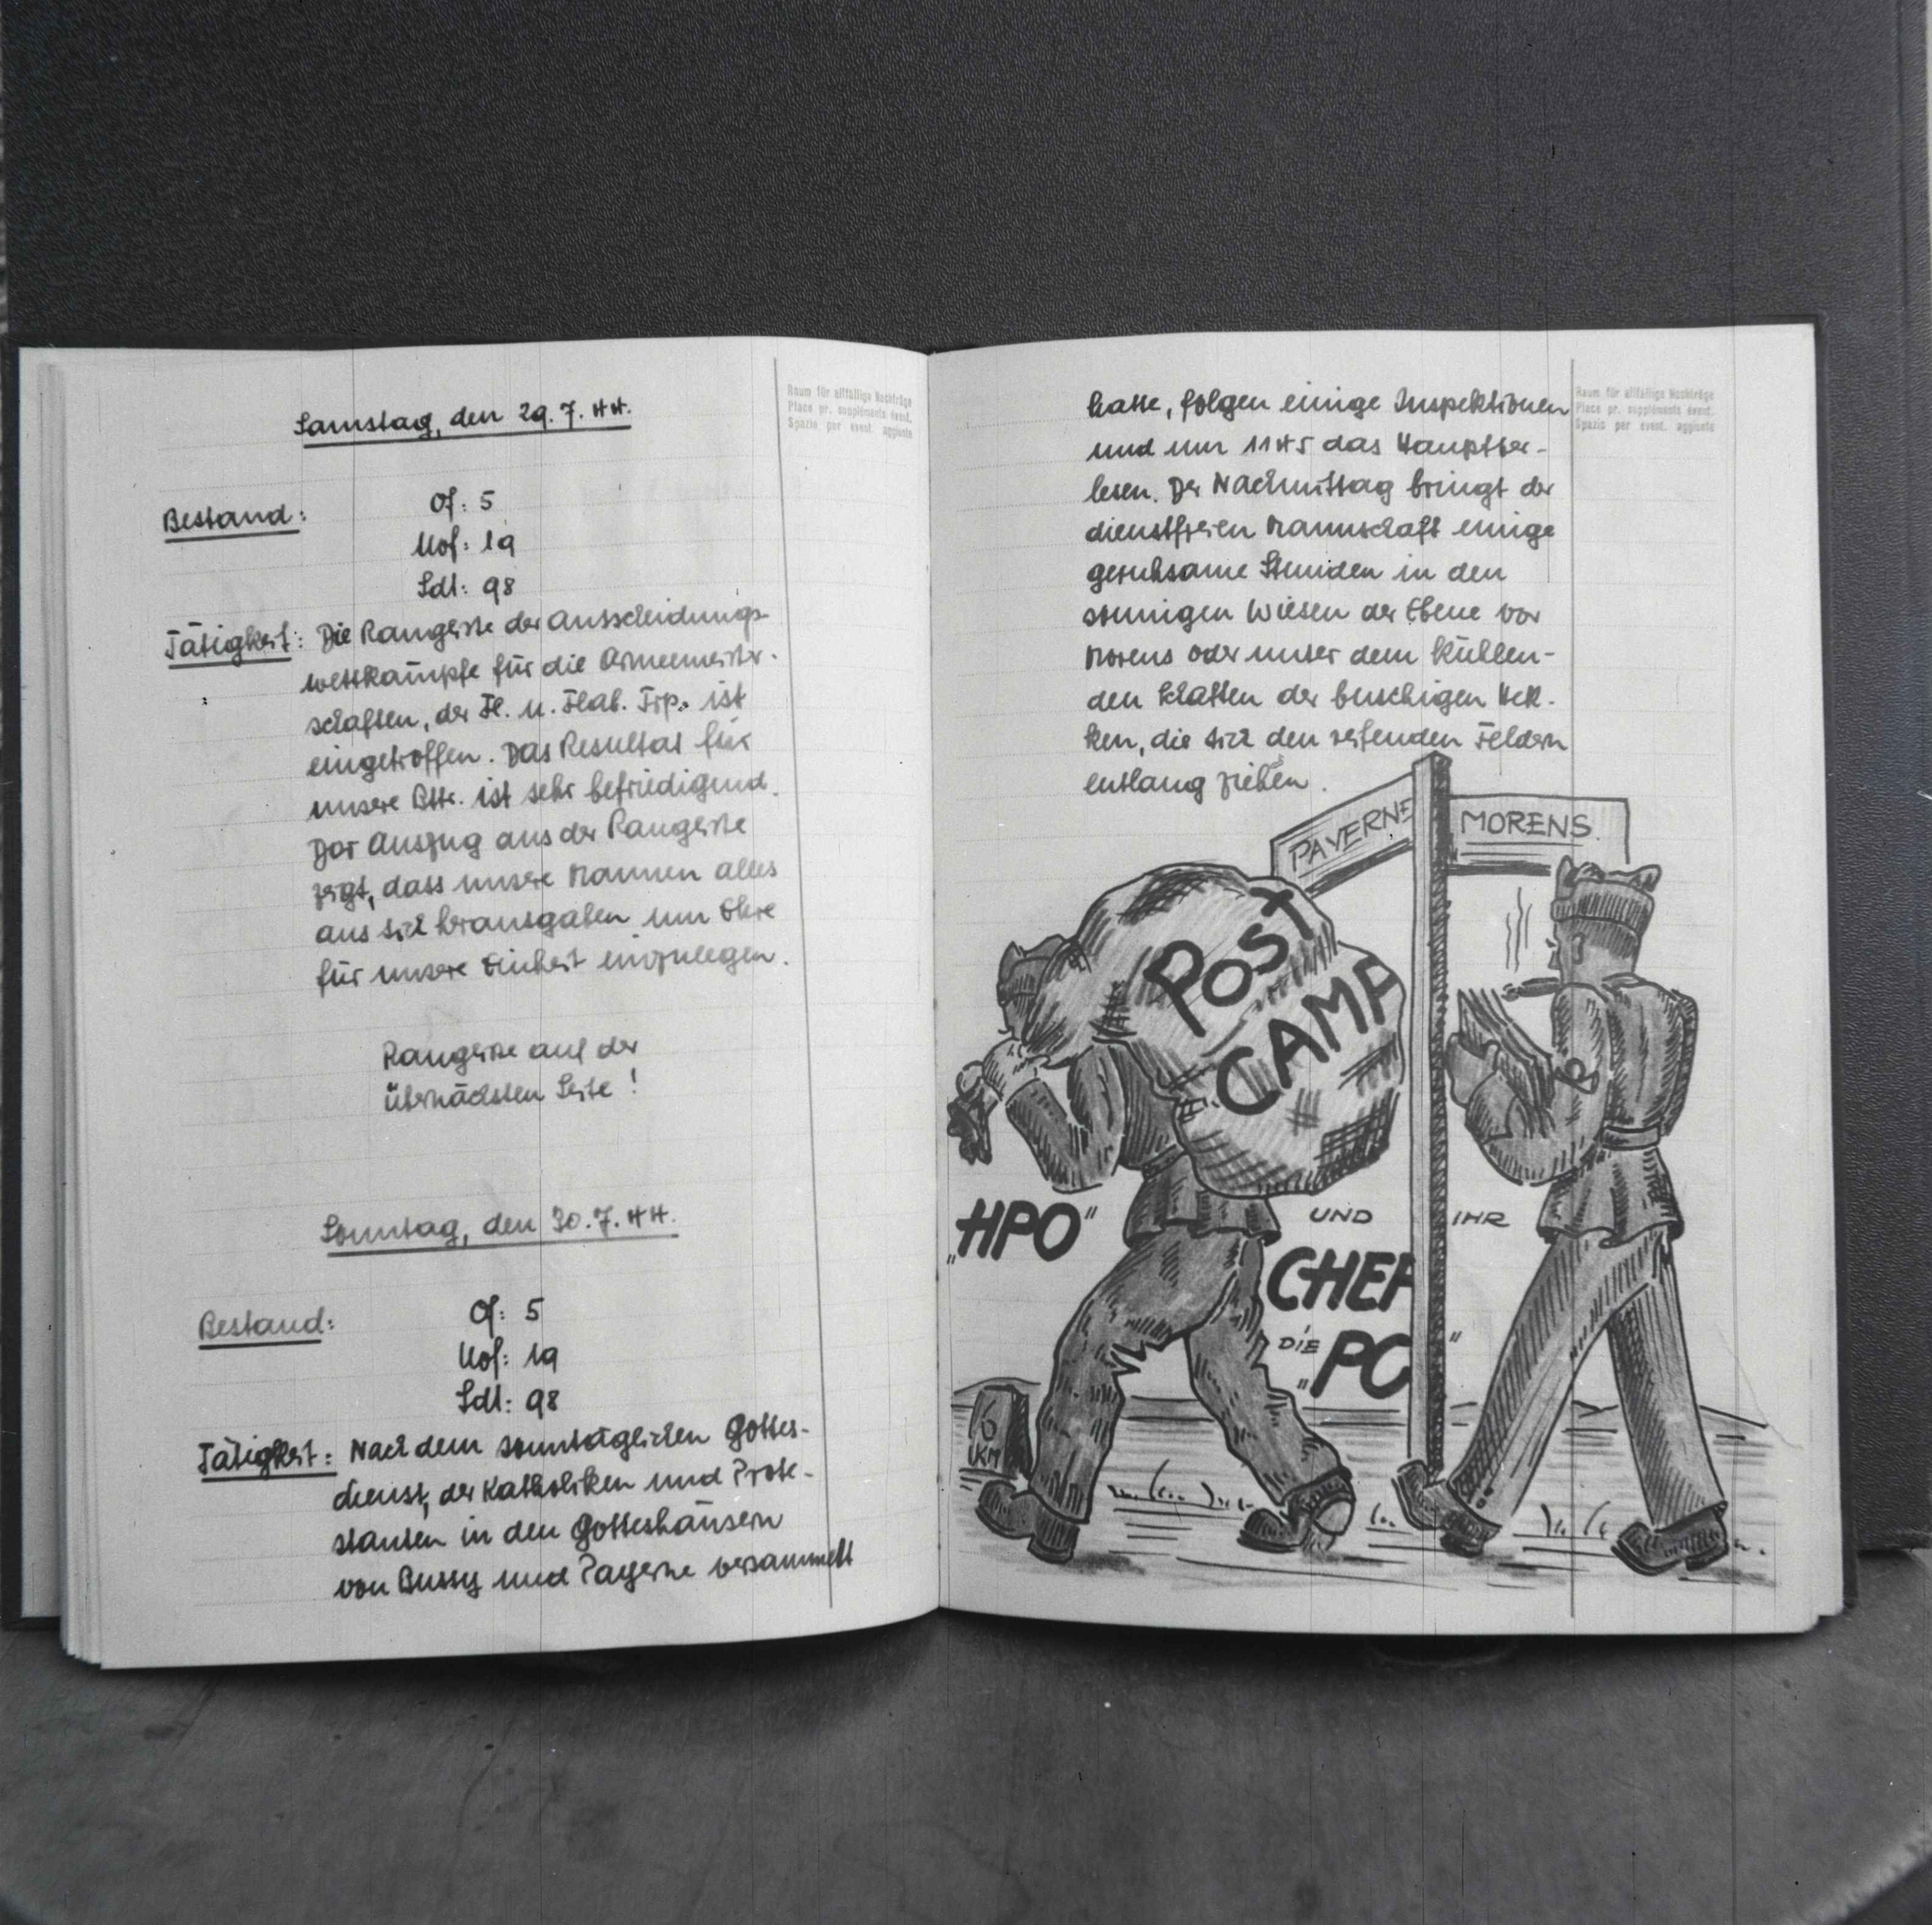 Samstag, den 29.7.44.
Raum für allfällige Nachträge
Place pr. suppléments évent.
Spazio per event. aggiunte
Bestand: Of: 5
Uof: 19
Sdt: 98
Tätigkeit: Die Rangliste der Ausscheidungs-
wettkämpfe für die Armeemeister-
schaften, der Fl. u. Flab. Trp. ist
eingetroffen. Das Resultat für
unsere Bttr. ist sehr befriedigend.
Der Auszug aus der Rangliste
zeigt, dass unsere Mannen alles
aus sich herausgaben um Ehre
für unsere Einheit einzulegen.
Rangliste auf der
übernächsten Seite!
Sonntag, den 30.7.44.
Bestand: Of: 5
Uof: 19
Sdt: 98
Tätigkeit: Nach dem sonntäglichen Gottes-
dienst, der Katholiken und Prote-
stanten in den Gotteshäusern
von Bussy und Payerne versammelt
hatte, folgen einige Inspektionen
und um 1145 das Hauptver-
lesen. Der Nachmittag bringt der
dienstfreien Mannschaft einige
geruhsame Stunden in den
sonnigen Wiesen der Ebene vor
Morens oder unter dem kühlen-
den Schatten der buschigen Hek-
ken, die sich den reifenden Feldern
entlang ziehen.
Raum für allfällige Nachträge
Place pr. suppléments évent.
Spazio per event. aggiunte
PAYERNE
MORENS.
POST
CAMP
„HPO" UND IHR
CHEF
DIE
„PO"
6
KM